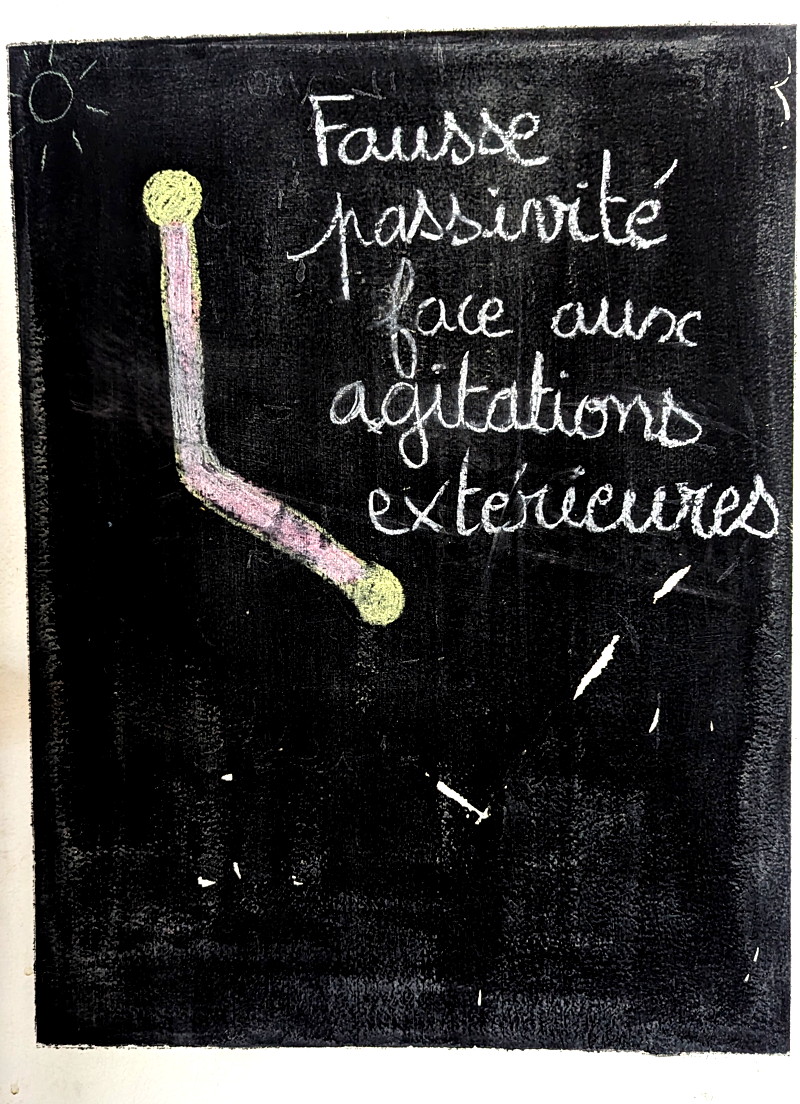 Fausse
passivité
face aux
agitations
extérieures